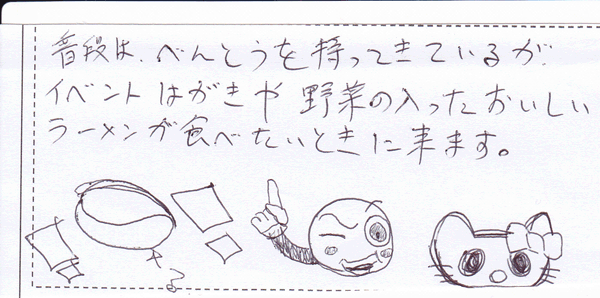 普段は、べんとうを持ってきているが
イベントはがきや野菜の入ったおいしい
ラーメンが食べたいときに来ます。